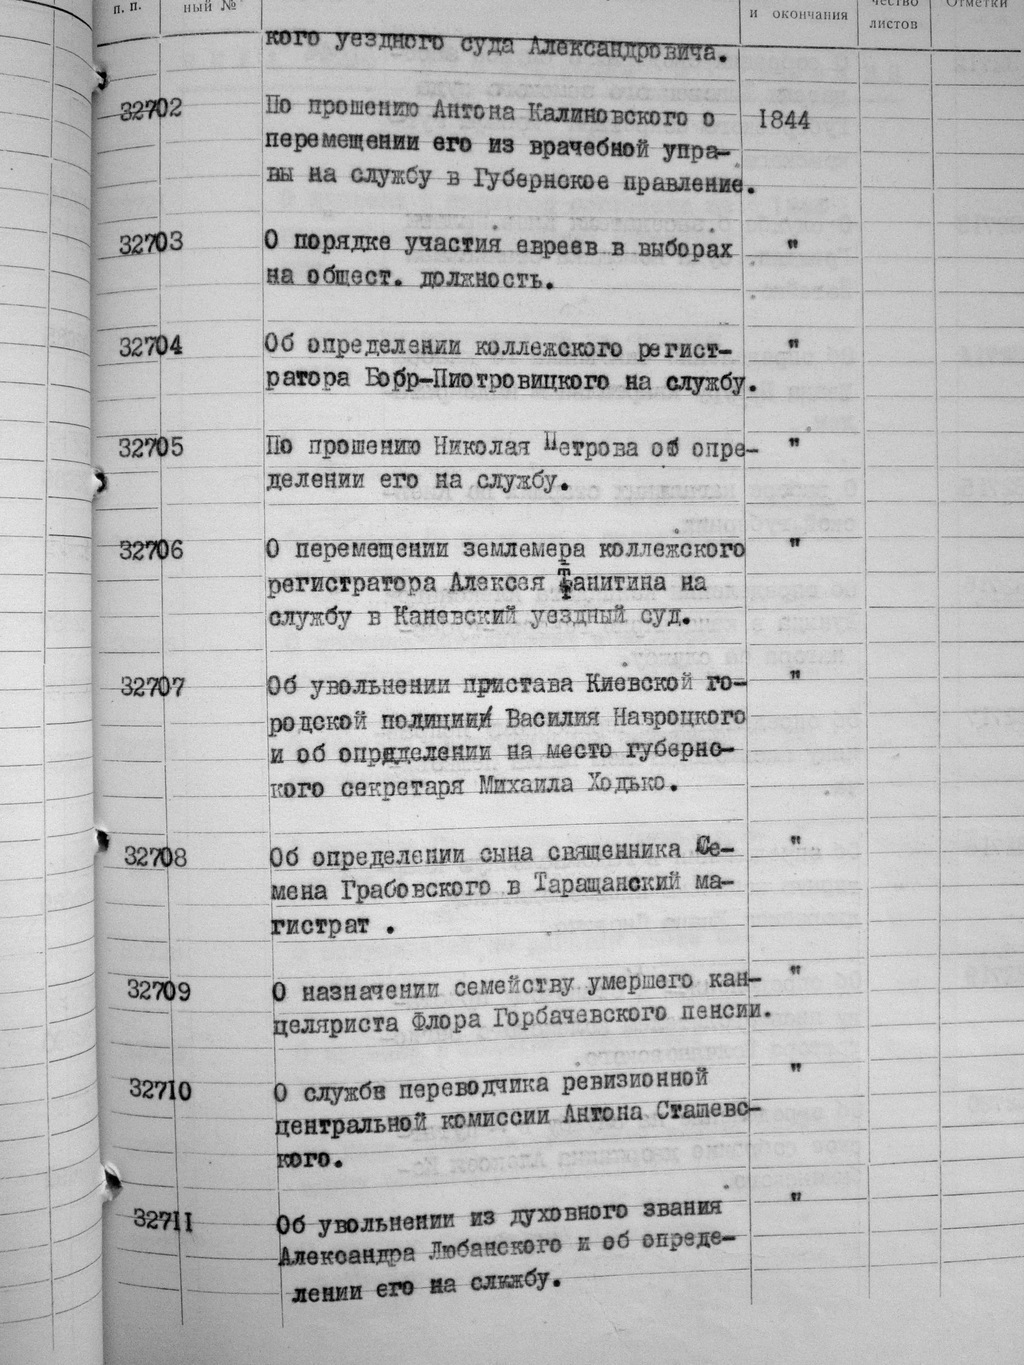 п. п.
ный №
и окончания
чество
листов
Отметки
кого уездного суда Александровича.
32702 По прошению Антона Калиновского о 1844
перемещении его из врачебной упра-
вы на службу в Губернское правление.
32703 О порядке участия евреев в выборах "
на общест. должность.
32704 Об определении коллежского регист- "
ратора Бобр-Пиотровицкого на службу.
32705 По прошению Николая Петрова об опре- "
делении его на службу.
32706 О перемещении землемера коллежского "
регистратора Алексея Танитина на
службу в Каневский уездный суд.
32707 Об увольнении пристава Киевской го- "
родской полиции Василия Навроцкого
и об определении на место губернс-
кого секретаря Михаила Ходько.
32708 Об определении сына священника Се- "
мена Грабовского в Таращанский ма-
гистрат .
32709 О назначении семейству умершего кан- "
целяриста Флора Горбачевского пенсии.
32710 О службе переводчика ревизионной "
центральной комиссии Антона Сташевс-
кого.
32711 Об увольнении из духовного звания "
Александра Любанского и об опреде-
лении его на службу.